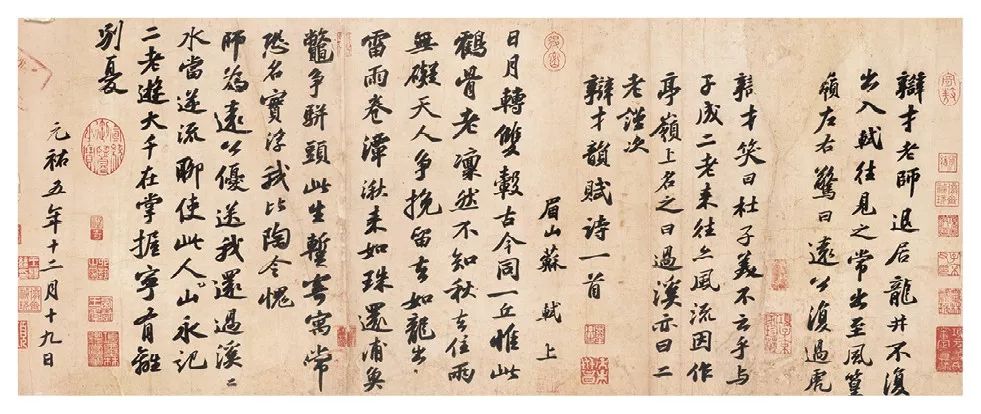 辯才老師退居龍井不復
出入軾往見之常出至風篁
嶺左右驚曰遠公復過虎
辯才笑曰杜子美不云乎與
子成二老来往亦風流因作
亭嶺上名之曰過溪亦曰二
老謹次
辯才韻賦詩一首
眉山蘇軾上
日月轉雙轂古今同一丘惟此
鶴骨老凜然不知秋去住兩
無礙天人争挽留去如龍出
雷雨卷潭湫来如珠還浦魚
鼈争駢頭此生暫寄寓常
恐名實浮我比陶令愧
師為遠公優送我還過溪〻
水當逆流聊使此人山永記
二老遊大千在掌握寧有離
別憂
元祐五年十二月十九日